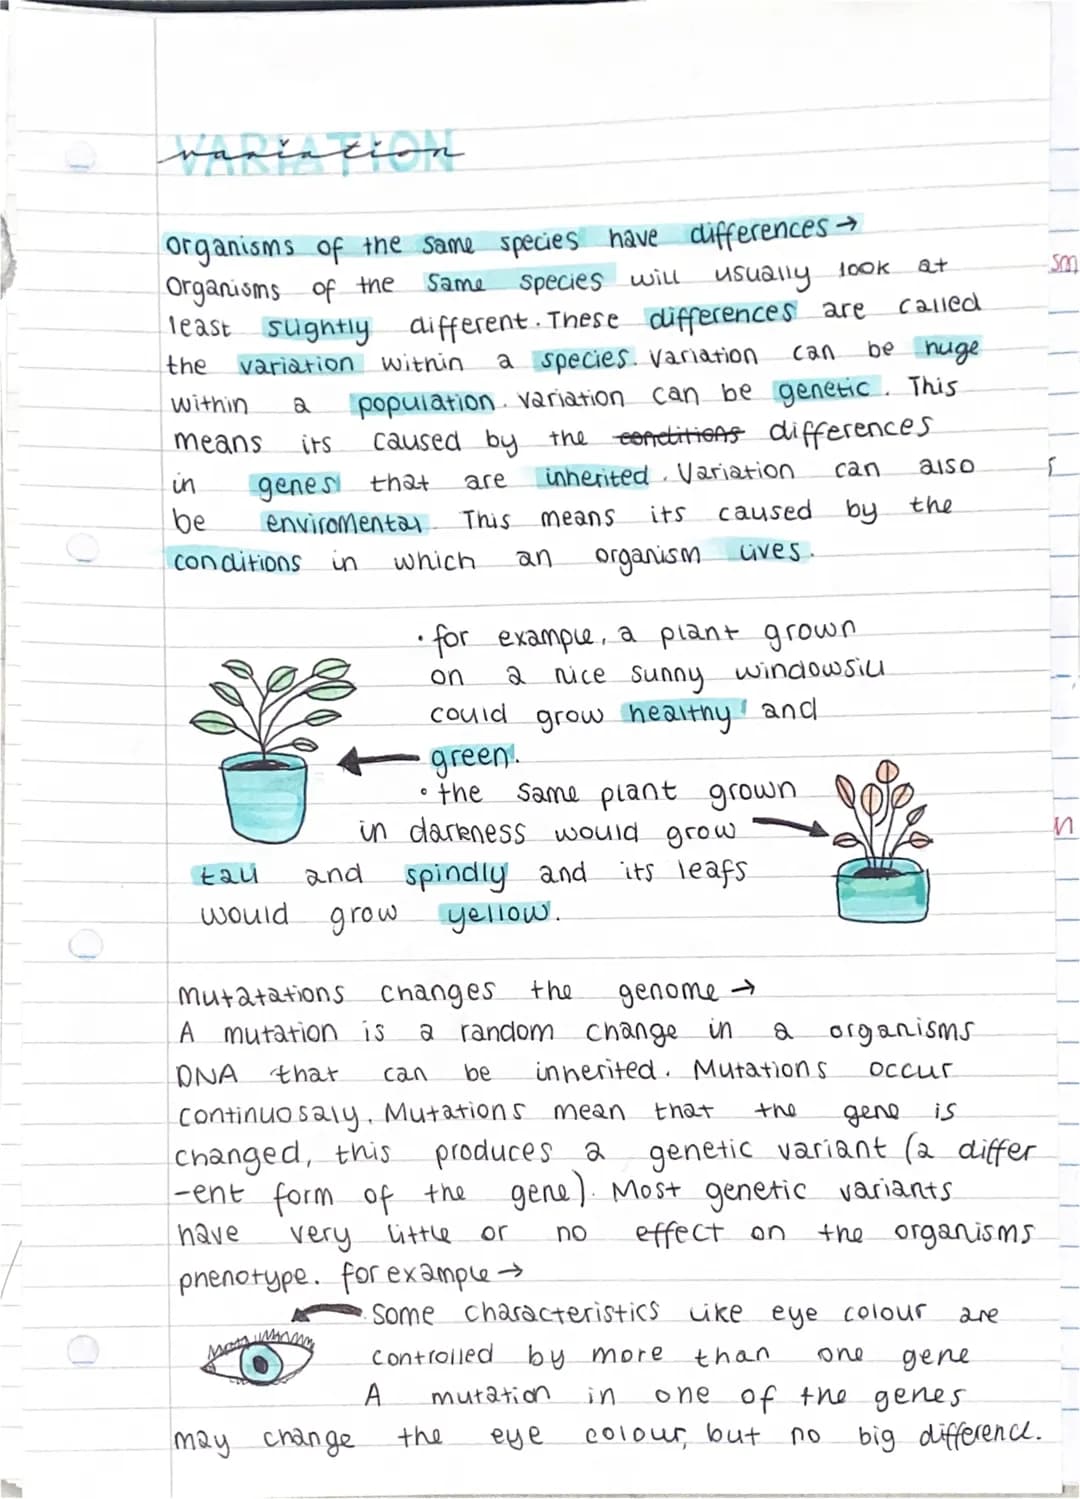 VARIATION
variation
organisms of the same species have differences →
Organisms of the same species will usually look at
least slightly different. These differences are called
the variation within a species. Variation can be huge
within a population. Variation can be genetic. This
means its caused by the conditions differences
in genes that are inherited. Variation can also
be enviromental. This means its caused by the
conditions in which an organism lives.
• for example, a plant grown
on a nice sunny windowsill
could grow healthy and
green.
• the same plant grown
in darkness would grow
tall and spindly and its leafs
would grow yellow.
Mutatations changes the genome →
A mutation is a random change in a organisms
DNA that can be inherited. Mutations occur
continuosaly. Mutations mean that the gene is
changed, this produces a genetic variant (a differ
-ent form of the gene). Most genetic variants
have very little or no effect on the organisms
phenotype. for example →
Some characteristics like eye colour are
controlled by more than one gene
A mutation in one of the genes
may change the eye colour, but no big difference.
sm
n